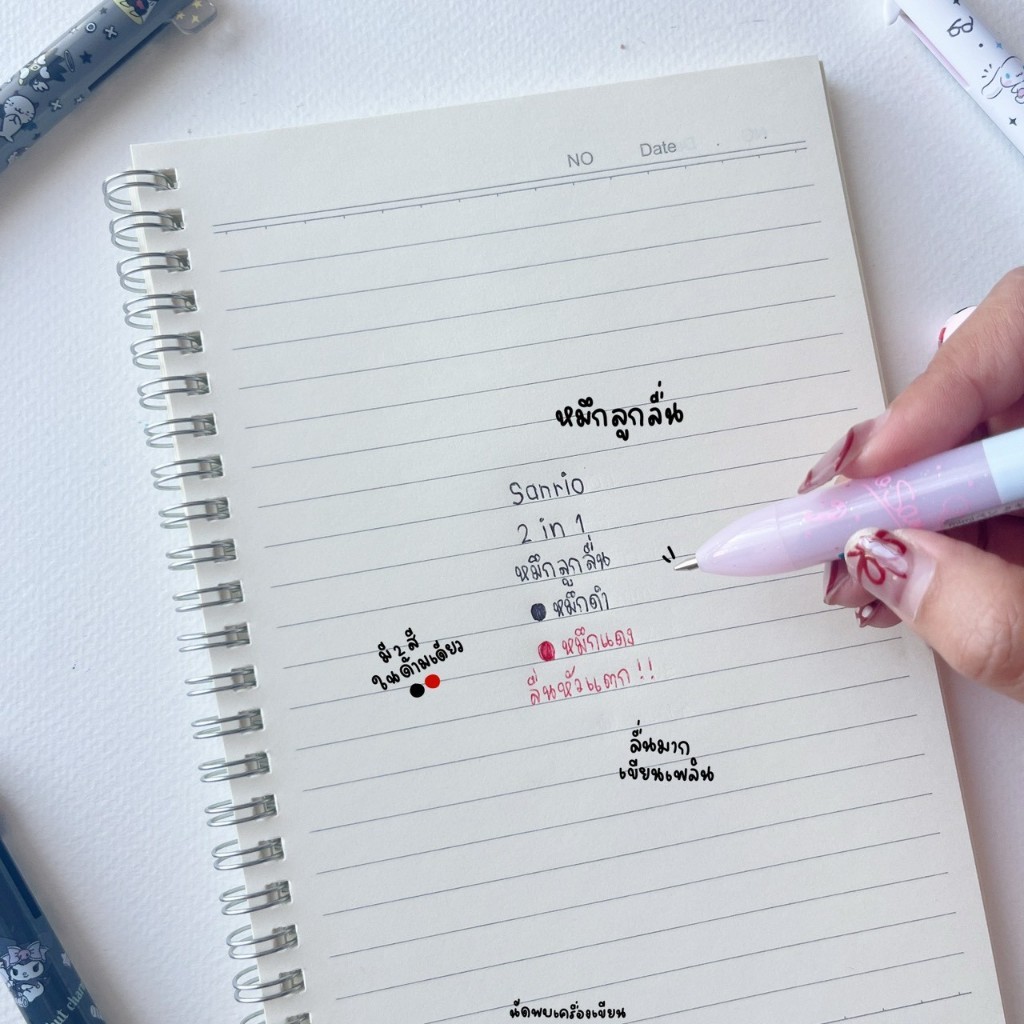 NO Date
หมึกลูกลื่น
Sanrio
2 in 1
หมึกลูกลื่น
หมึกดำ
หมึกแดง
ลื่นหัวแตก!!
มี 2 สี
ในด้ามเดียว
ลื่นมาก
เขียนเพลิน
นัดพบเครื่องเขียน